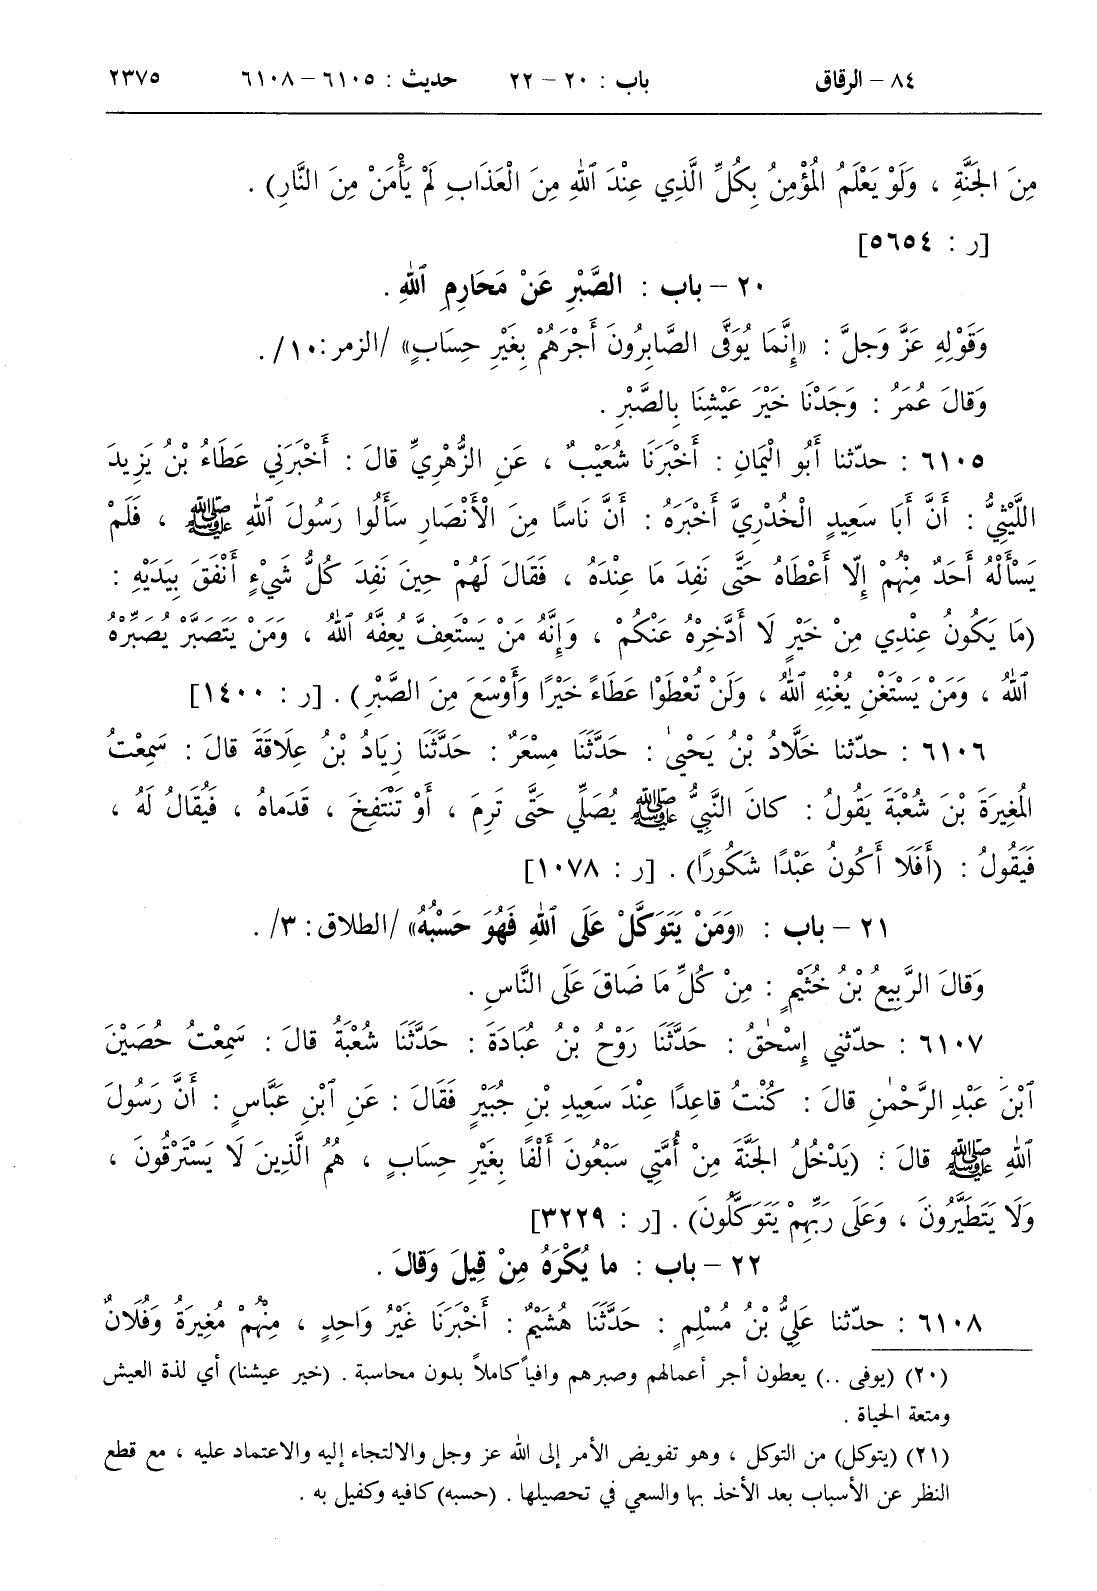 ٨٤ – الرقاق باب : ٢٠ – ٢٢ حديث : ٦١٠٥ – ٦١٠٨ ٢٣٧٥
مِنَ الجَنَّةِ ، وَلَوْ يَعْلَمُ المُؤْمِنُ بِكُلِّ الَّذِي عِنْدَ ٱللهِ مِنَ الْعَذَابِ لَمْ يَأْمَنْ مِنَ النَّارِ) .
[ر : ٥٦٥٤]
٢٠ – باب : الصَّبْرِ عَنْ مَحَارِمِ ٱللهِ .
وَقَوْلِهِ عَزَّ وَجلَّ : «إِنَّمَا يُوَفَّى الصَّابِرُونَ أَجْرَهُمْ بِغَيْرِ حِسَابٍ» /الزمر: ١٠/ .
وَقالَ عُمَرُ : وَجَدْنَا خَيْرَ عَيْشِنَا بِالصَّبْرِ .
٦١٠٥ : حدّثنا أَبُو الْيَمَانِ : أَخْبَرَنَا شُعَيْبٌ ، عَنِ الزُّهْرِيِّ قالَ : أَخْبَرَنِي عَطَاءُ بْنُ يَزِيدَ
اللَّيْثِيُّ : أَنَّ أَبَا سَعِيدٍ الْخُدْرِيَّ أَخْبَرَهُ : أَنَّ نَاسًا مِنَ الْأَنْصَارِ سَأَلُوا رَسُولَ ٱللهِ ﷺ ، فَلَمْ
يَسْأَلْهُ أَحَدٌ مِنْهُمْ إِلَّا أَعْطَاهُ حَتَّى نَفِدَ ما عِنْدَهُ ، فَقَالَ لَهُمْ حِينَ نَفِدَ كُلُّ شَيْءٍ أَنْفَقَ بِيَدَيْهِ :
(مَا يَكُونُ عِنْدِي مِنْ خَيْرٍ لَا أَدَّخِرْهُ عَنْكُمْ ، وَإِنَّهُ مَنْ يَسْتَعِفَّ يُعِفَّهُ ٱللهُ ، وَمَنْ يَتَصَبَّرْ يُصَبِّرْهُ
ٱللهُ ، وَمَنْ يَسْتَغْنِ يُغْنِهِ ٱللهُ ، وَلَنْ تُعْطَوْا عَطَاءً خَيْرًا وَأَوْسَعَ مِنَ الصَّبْرِ) . [ر : ١٤٠٠]
٦١٠٦ : حدّثنا خَلَّادُ بْنُ يَحْيىٰ : حَدَّثَنَا مِسْعَرٌ : حَدَّثَنَا زِيَادُ بْنُ عِلَاقَةَ قالَ : سَمِعْتُ
المُغِيرَةَ بْنَ شُعْبَةَ يَقُولُ : كانَ النَّبِيُّ ﷺ يُصَلِّي حَتَّى تَرِمَ ، أَوْ تَنْتَفِخَ ، قَدَماهُ ، فَيُقَالُ لَهُ ،
فَيَقُولُ : (أَفَلَا أَكُونُ عَبْدًا شَكُورًا) . [ر : ١٠٧٨]
٢١ – باب : «وَمَنْ يَتَوَكَّلْ عَلَى ٱللهِ فَهُوَ حَسْبُهُ» /الطلاق: ٣/ .
وَقالَ الرَّبِيعُ بْنُ خُثَيْمٍ : مِنْ كُلِّ مَا ضَاقَ عَلَى النَّاسِ .
٦١٠٧ : حدّثني إِسْحٰقُ : حَدَّثَنَا رَوْحُ بْنُ عُبَادَةَ : حَدَّثَنَا شُعْبَةُ قالَ : سَمِعْتُ حُصَيْنَ
ٱبْنَ عَبْدِ الرَّحْمٰنِ قالَ : كُنْتُ قاعِدًا عِنْدَ سَعِيدِ بْنِ جُبَيْرٍ فَقَالَ : عَنِ ٱبْنِ عَبَّاسٍ : أَنَّ رَسُولَ
ٱللهِ ﷺ قالَ : (يَدْخُلُ الجَنَّةَ مِنْ أُمَّتِي سَبْعُونَ أَلْفًا بِغَيْرِ حِسَابٍ ، هُمُ الَّذِينَ لَا يَسْتَرْقُونَ ،
وَلَا يَتَطَيَّرُونَ ، وَعَلَى رَبِّهِمْ يَتَوَكَّلُونَ) . [ر : ٣٢٢٩]
٢٢ – باب : ما يُكْرَهُ مِنْ قِيلَ وَقالَ .
٦١٠٨ : حدّثنا عَلِيُّ بْنُ مُسْلِمٍ : حَدَّثَنَا هُشَيْمٌ : أَخْبَرَنَا غَيْرُ وَاحِدٍ ، مِنْهُمْ مُغِيرَةُ وَفُلَانٌ
(٢٠) (يوفى ..) يعطون أجر أعمالهم وصبرهم وافياً كاملاً بدون محاسبة . (خير عيشنا) أي لذة العيش
ومتعة الحياة .
(٢١) (يتوكل) من التوكل ، وهو تفويض الأمر إلى الله عز وجل والالتجاء إليه والاعتماد عليه ، مع قطع
النظر عن الأسباب بعد الأخذ بها والسعي في تحصيلها . (حسبه) كافيه وكفيل به .